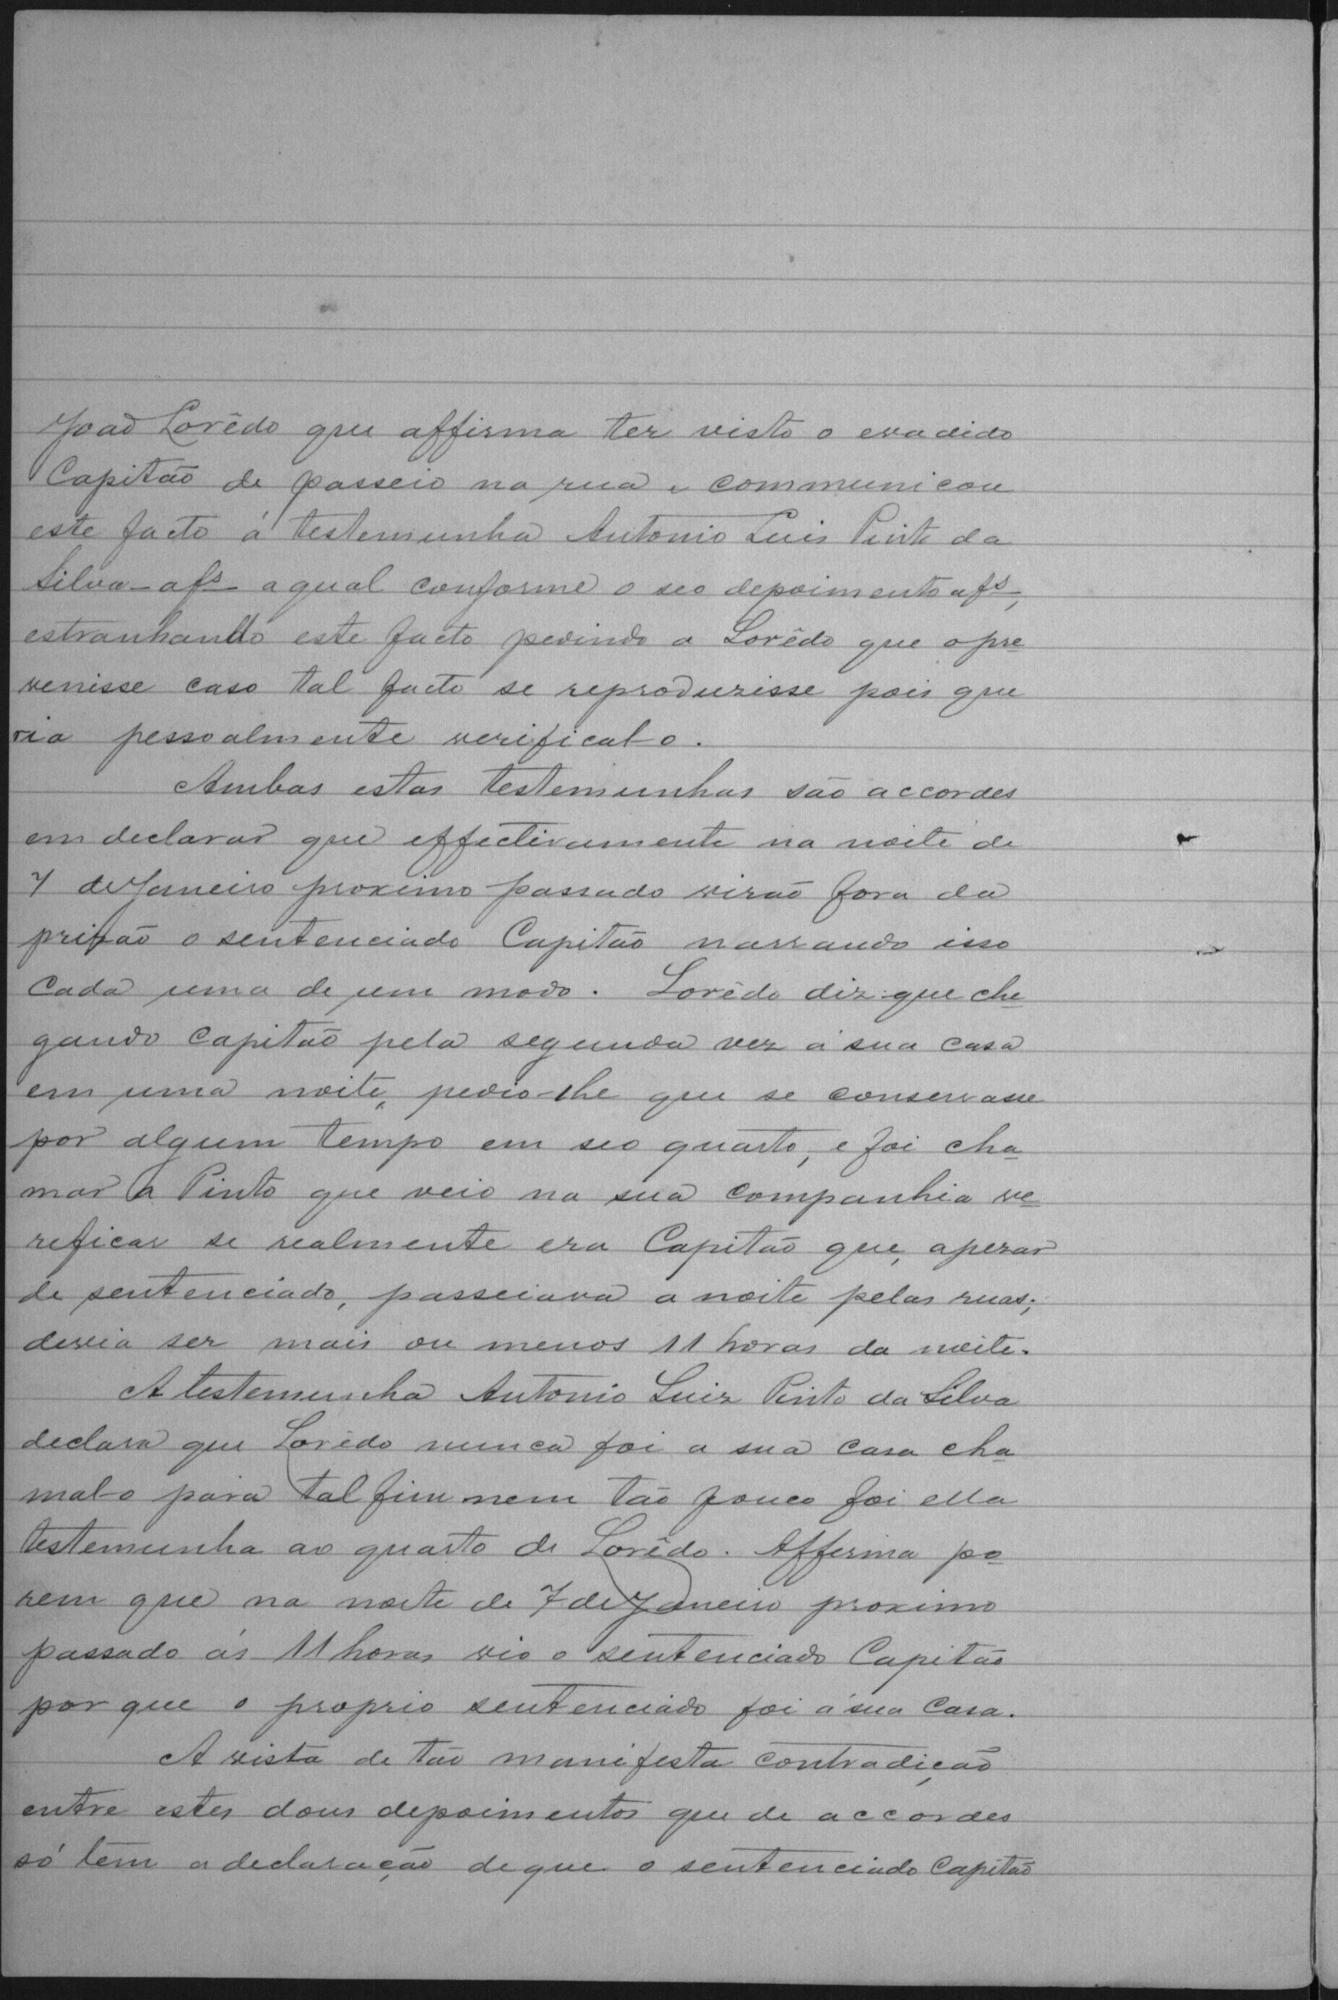 João Lorêdo que affirma ter visto o evadido
Capitão de passeio na rua e communicou
este facto á testemunha Antonio Luis Pinto da
Silva - afs - a qual conforme o seo depoimento afs -,
estranhando este facto pedindo a Lorêdo que o pre
venisse caso tal facto se reproduzisse pois que
ria pessoalmente verifical-o.
Ambas estas testemunhas são accordes
em declarar que effectivamente na noite de
7 de Janeiro proximo passado virão fora da
prizão o sentenciado Capitão narrando isso
cada uma de um modo. Lorêdo diz que che
gando Capitão pela segunda vez á sua casa
em uma noite, pedio-lhe que se conservasse
por algum tempo em seo quarto, e foi cha
mar a Pinto que veio na sua companhia ve
reficar se realmente era Capitão que, apezar
de sentenciado, passeiava a noite pelas ruas;
devia ser mais ou menos 11 horas da noite.
A testemunha Antonio Luiz Pinto da Silva
declara que Lorêdo nunca foi a sua casa cha
mal-o para tal fim nem tão pouco foi ella
testemunha ao quarto de Lorêdo. Afferma po
rem que na noite de 7 de Janeiro proximo
passado ás 11 horas vio o sentenciado Capitão
por que o proprio sentenciado foi á sua casa.
A vista de tão manifesta contradição
entre estes dous depoimentos que de accordes
só têm a declaração de que o sentenciado Capitão